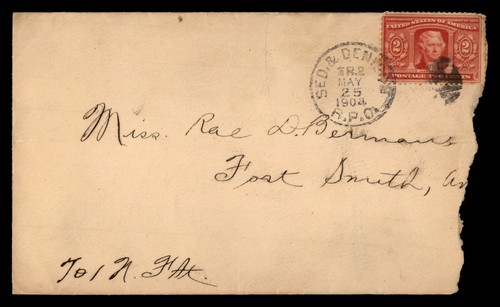 UNITED STATES OF AMERICA
2 2
POSTAGE TWO CENTS
SED. & DENI
TR.2
MAY
25
1904
R.P.O.
Miss. Rae D. Bermans
Fort Smith, Ar
701 N. 7th St.